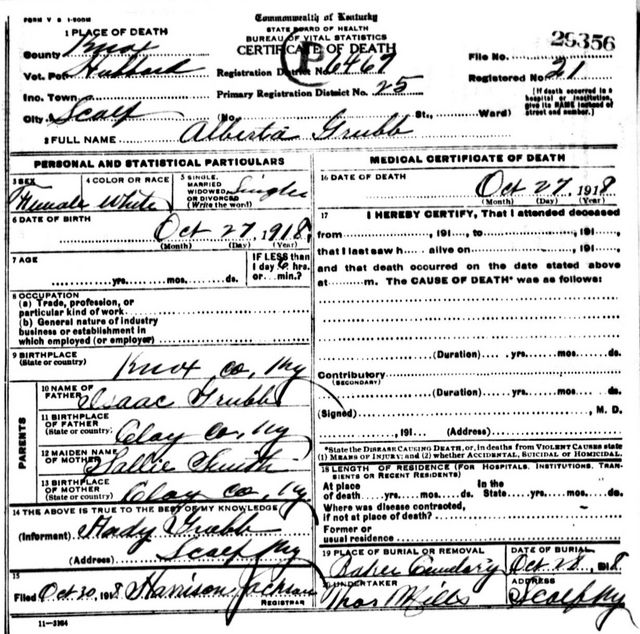 FORM V S 1-500M
Commonwealth of Kentucky
STATE BOARD OF HEALTH
BUREAU OF VITAL STATISTICS
CERTIFICATE OF DEATH
1 PLACE OF DEATH
County Knox
Vot. Pct. Hubbard
Inc. Town
City Scalf (No. St., Ward)
Registration District No. 6467
Primary Registration District No. 25
File No. 29356
Registered No. 21
[If death occurred in a hospital or institution, give its NAME instead of street and number.]
2 FULL NAME Alberta Grubb
PERSONAL AND STATISTICAL PARTICULARS
3 SEX Female
4 COLOR OR RACE White
5 SINGLE, MARRIED WIDOWED OR DIVORCED (Write the word) Single
6 DATE OF BIRTH Oct 27, 1918,
(Month) (Day) (Year)
7 AGE yrs. mos. ds.
IF LESS than 1 day hrs. or min.?
8 OCCUPATION
(a) Trade, profession, or particular kind of work
(b) General nature of industry business or establishment in which employed (or employer)
9 BIRTHPLACE (State or country) Knox Co, Ky
PARENTS
10 NAME OF FATHER Isaac Grubb
11 BIRTHPLACE OF FATHER (State or country) Clay Co, Ky
12 MAIDEN NAME OF MOTHER Sallie Smith
13 BIRTHPLACE OF MOTHER (State or country) Clay Co, Ky
14 THE ABOVE IS TRUE TO THE BEST OF MY KNOWLEDGE
(Informant) Hady Grubb
(Address) Scalf Ky
15 Filed Oct 30, 1918 Harrison Jackson
REGISTRAR
11-3304
MEDICAL CERTIFICATE OF DEATH
16 DATE OF DEATH
Oct 27, 1918
(Month) (Day) (Year)
17 I HEREBY CERTIFY, That I attended deceased
from , 191 , to , 191 ,
that I last saw h alive on , 191 ,
and that death occurred on the date stated above
at m. The CAUSE OF DEATH* was as follows:
(Duration) yrs. mos. ds.
Contributory
(SECONDARY)
(Duration) yrs. mos. ds.
(Signed) , M. D.
, 191 (Address)
*State the DISEASE CAUSING DEATH, or, in deaths from VIOLENT CAUSES state (1) MEANS OF INJURY; and (2) whether ACCIDENTAL, SUICIDAL OR HOMICIDAL.
18 LENGTH OF RESIDENCE (FOR HOSPITALS, INSTITUTIONS, TRANSIENTS OR RECENT RESIDENTS)
At place of death yrs. mos. ds. In the State yrs. mos. ds.
Where was disease contracted, if not at place of death?
Former or usual residence
19 PLACE OF BURIAL OR REMOVAL Baker
DATE OF BURIAL Oct 28, 1918
20 UNDERTAKER Thos Mills
ADDRESS Scalf Ky